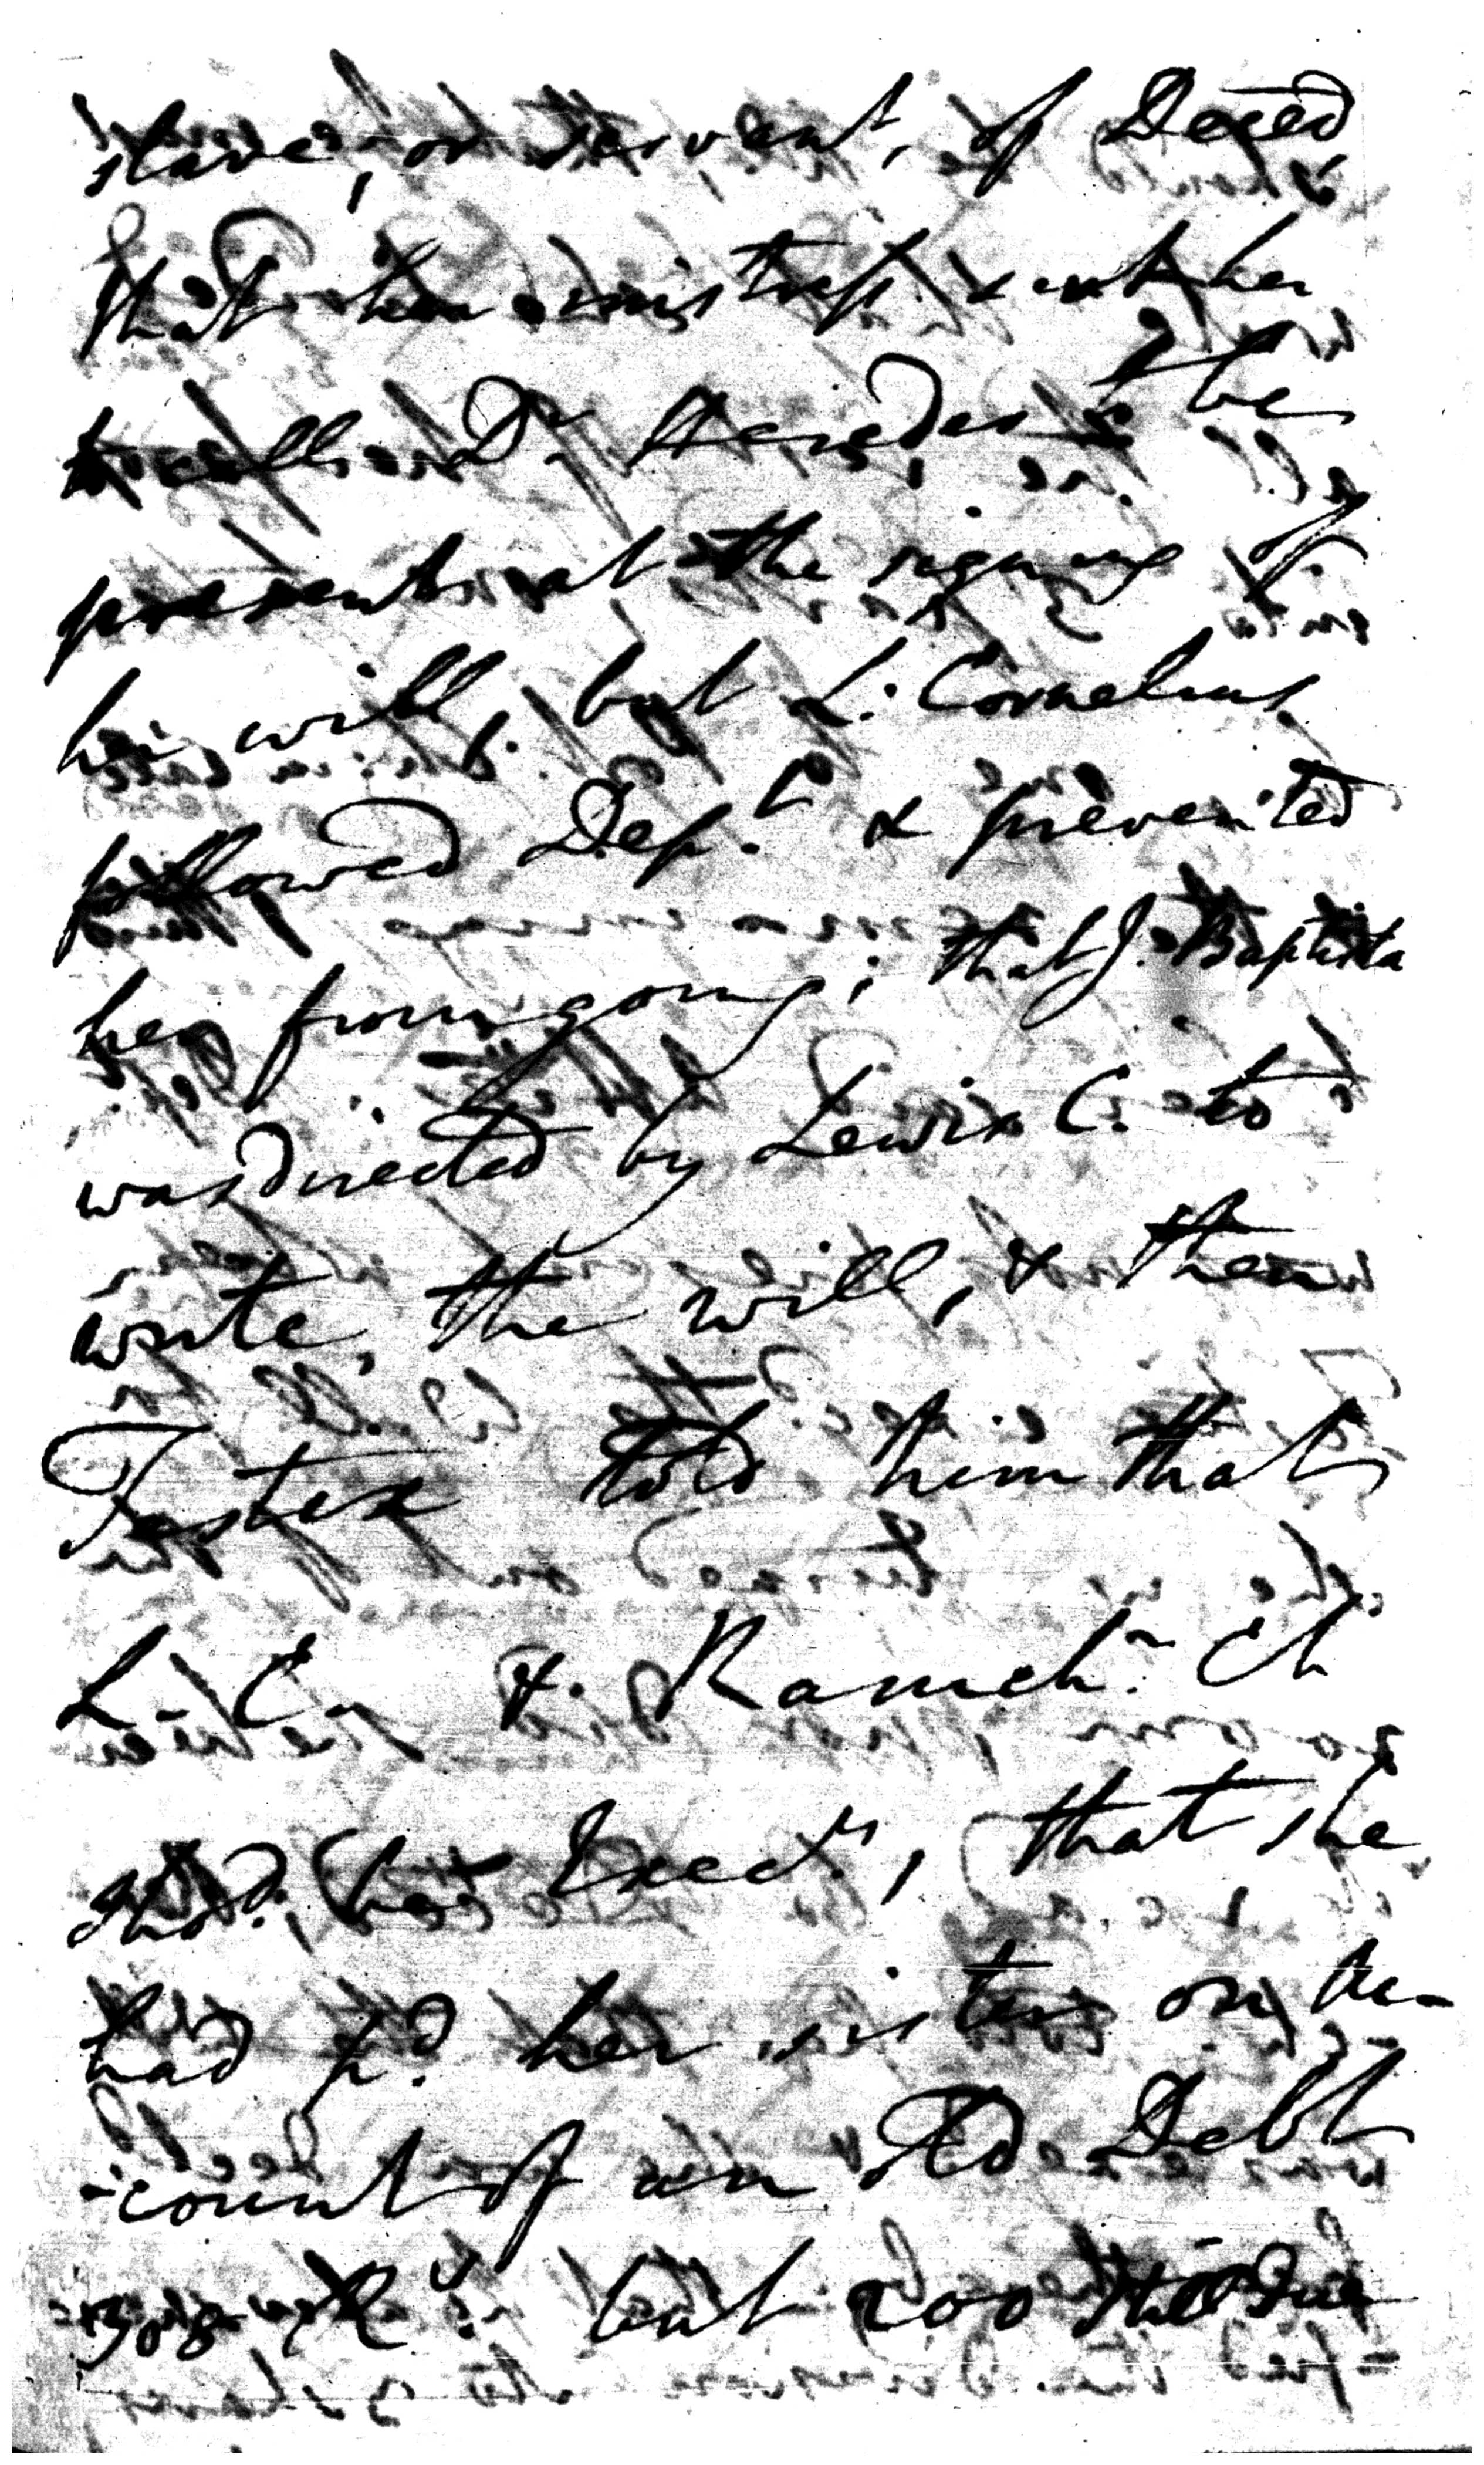 slave, or servent, of Deced
that her mistress sent her
to call Dr Heredes to be
present at the signing of
her will, but L: Cornelius
followed Dept & prevented
her from going; that J. Baptista
was directed by Lewis C. to
write, the will, & then
Testex told him that
L. C. & Ramchn Ch
shod, her Exectrs, that she
had pd. her sister on ac-
-count of an old Debt
308 Rs. but 200 still due